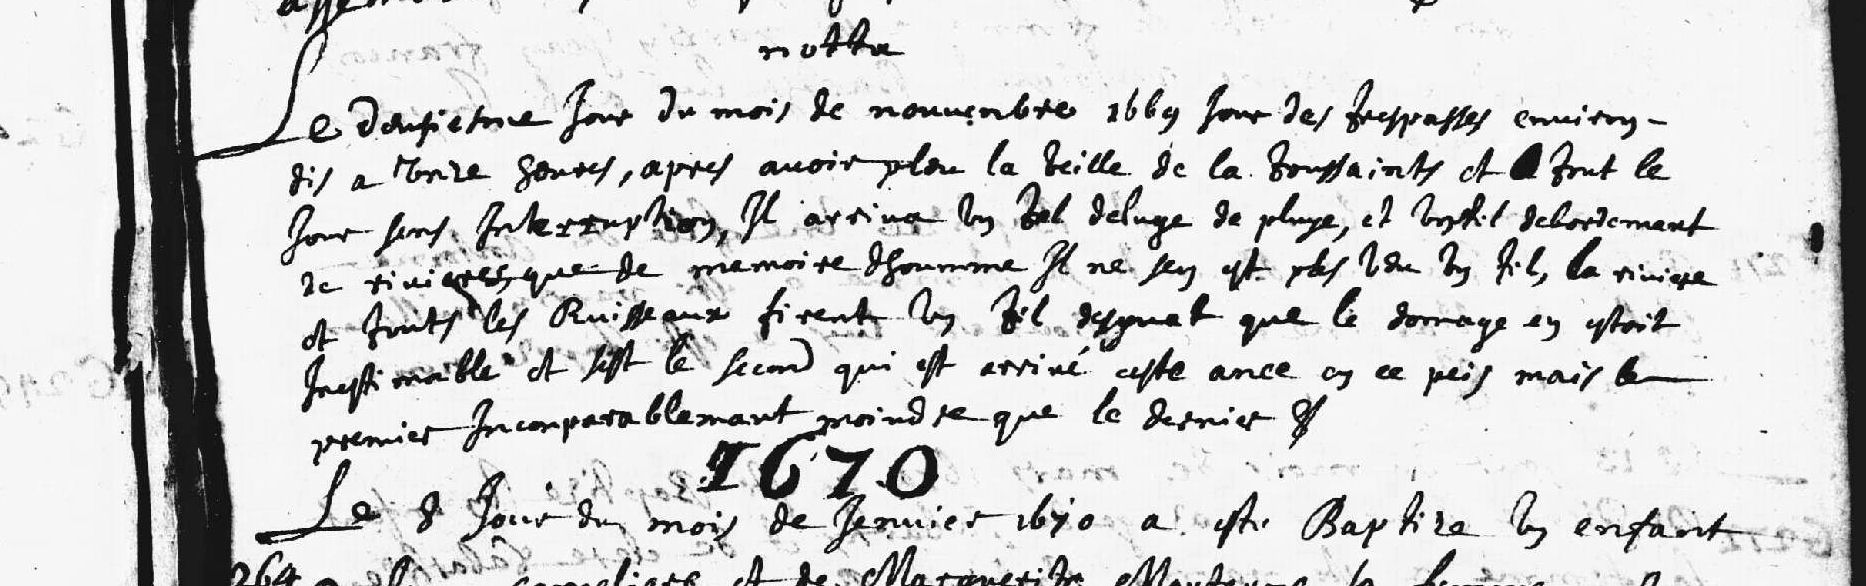 notta
Le deusiesme Jour du mois de nouvenbre 1669 Jour des trespasses environ
dis a unze heures, apres avoir pleu la veille de la toussaints et tout le
Jour sens Interruption, Il arriva un tel deluge de pluye, et un tel debordement
de rivieres, que de memoire dhoumme Il ne sen est pas veu un tel, la riviere
et touts les Ruisseaux firent un tel desguat que le domage en estoit
Inestimable et sest le second qui est arrivé ceste anee en ce peis mais le
premier Incomparablemant moindre que le dernier
1670
Le 8 Jour du mois de Jenvier 1670 a este Baptize un enfant
264 et de Marguerite